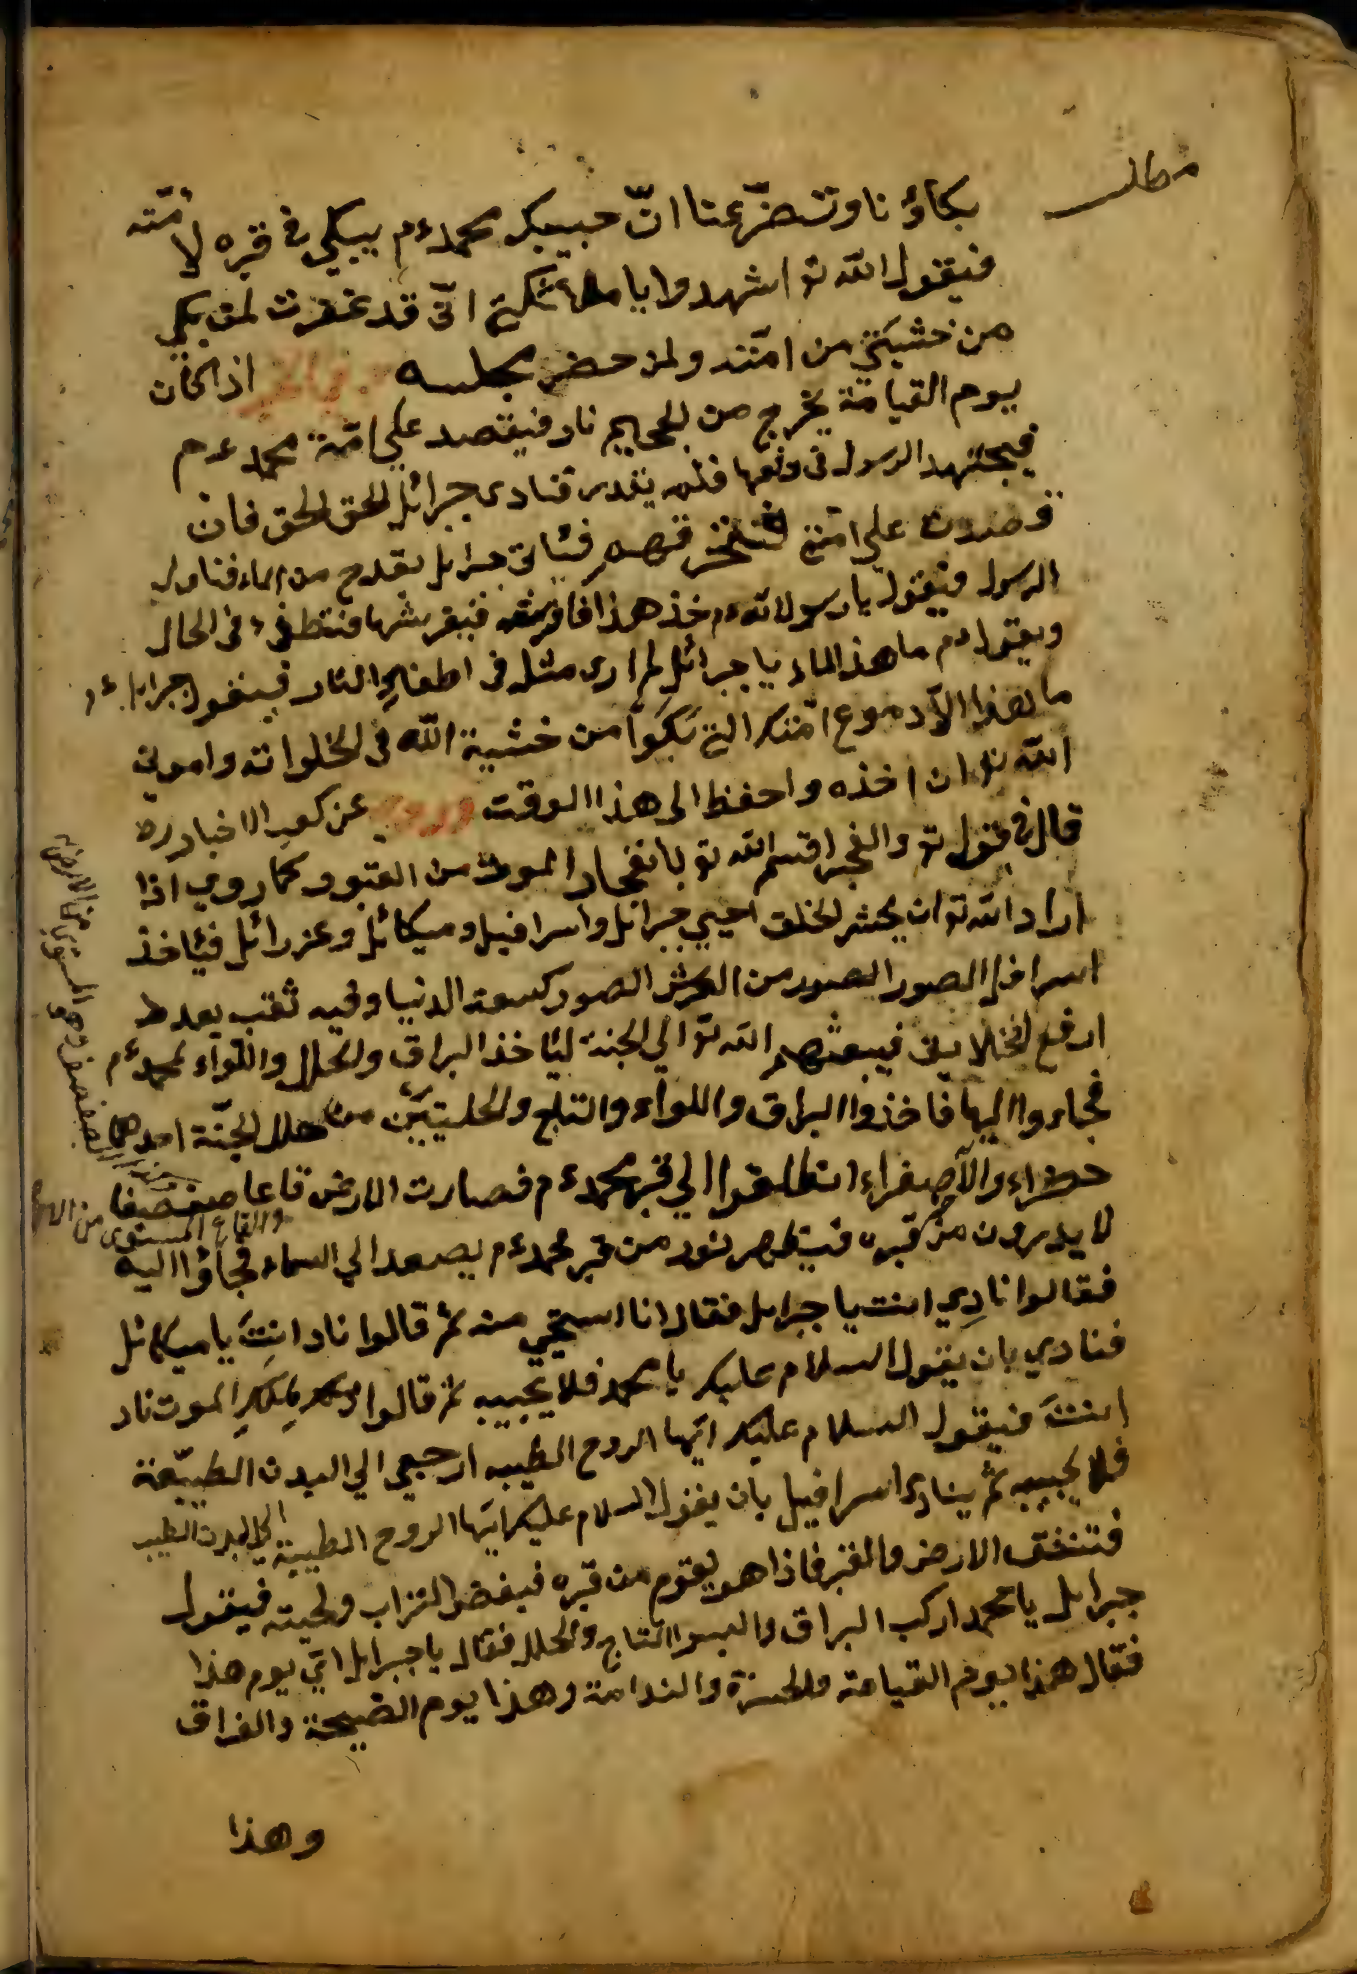 مطلب
بكاؤنا وتضرّعنا انّ حبيبك محمد ءم يبكي في قبره لامّته
فيقول الله تو اشهدوا يا ملائكتي انّى قد غفرت لمن بكى
من خشيتى من امّته ولمن حضر مجلسه وفي الخبر اذا كان
يوم القيامة يخرج من الجحيم نار فيقصد على امّة محمد ءم
فيجتهد الرسول فى دفعها فلم يقدر فنادى جبرائيل الحق الحق فان
قصدت على امّتى فيأتى جبرائل بقدح من الماء فناول
الرسول فيقول يا رسول الله خذ هذا فيرشها فتنطفىء فى الحال
ويقول ءم ما هذا الماء يا جبرائل لم ارى مثله فى اطفاء النار فيقول جبرايل ءم
ما هذا الّا دموع امّتك التى بكوا من خشية الله فى الخلوات وامرنى
الله تو ان اخذه واحفظ الى هذا الوقت وروى عن كعب الاخبار رة
قال فى قول تو والفجر اقسم الله تو بانفجار الموت من القبور كما روى اذا
اراد الله تو ان يحشر الخلق احيى جبرائل واسرافيل وميكائل وعزرائل فيأخذ
اسرافل الصور من العرش الصور كسعة الدنيا وفيه ثقب بعدد
ارفع الخلايق فيبعثهم الله تو الى الجنة ليأخذ البراق والحلل واللواء لمحمد ءم
فجاءوا اليها فاخذوا البراق واللواء والتاج والحليتين من حلل الجنّة احدهما
خضراء والآصفراء انطلقوا الي قبر محمد ءم فصارت الارض قاعا صفصفا
والقاع المستوى من الارض
لا يدرون من قبره فيظهر نور من قبر محمد ءم يصعد الى السماء فجاؤا اليه
فقالوا نادى انت يا جبرايل فقال انا استحيى منه ثم قالوا ناد انت يا ميكائل
فنادى بان يقول السلام عليك يا محمد فلا يجيبه ثم قالوا لملك الموت ناد
انت فيقول السلام عليك ايّها الروح الطيبه ارجعى الى البدن الطيبة
فلا يجيبه ثم ينادى اسرافيل بان يقول السلام عليك ايّها الروح الطيبة الى البدن الطيب
فتنشق الارض والقبر فاذا هو يقوم من قبره فينفض التراب ولحيته فيقول
جبرايل يا محمد اركب البراق والبسوا التاج والحلل فقال يا جبرايل اىّ يوم هذا
فقال هذا يوم القيامة والحسرة والندامة وهذا يوم الصيحة والفراق
وهذا